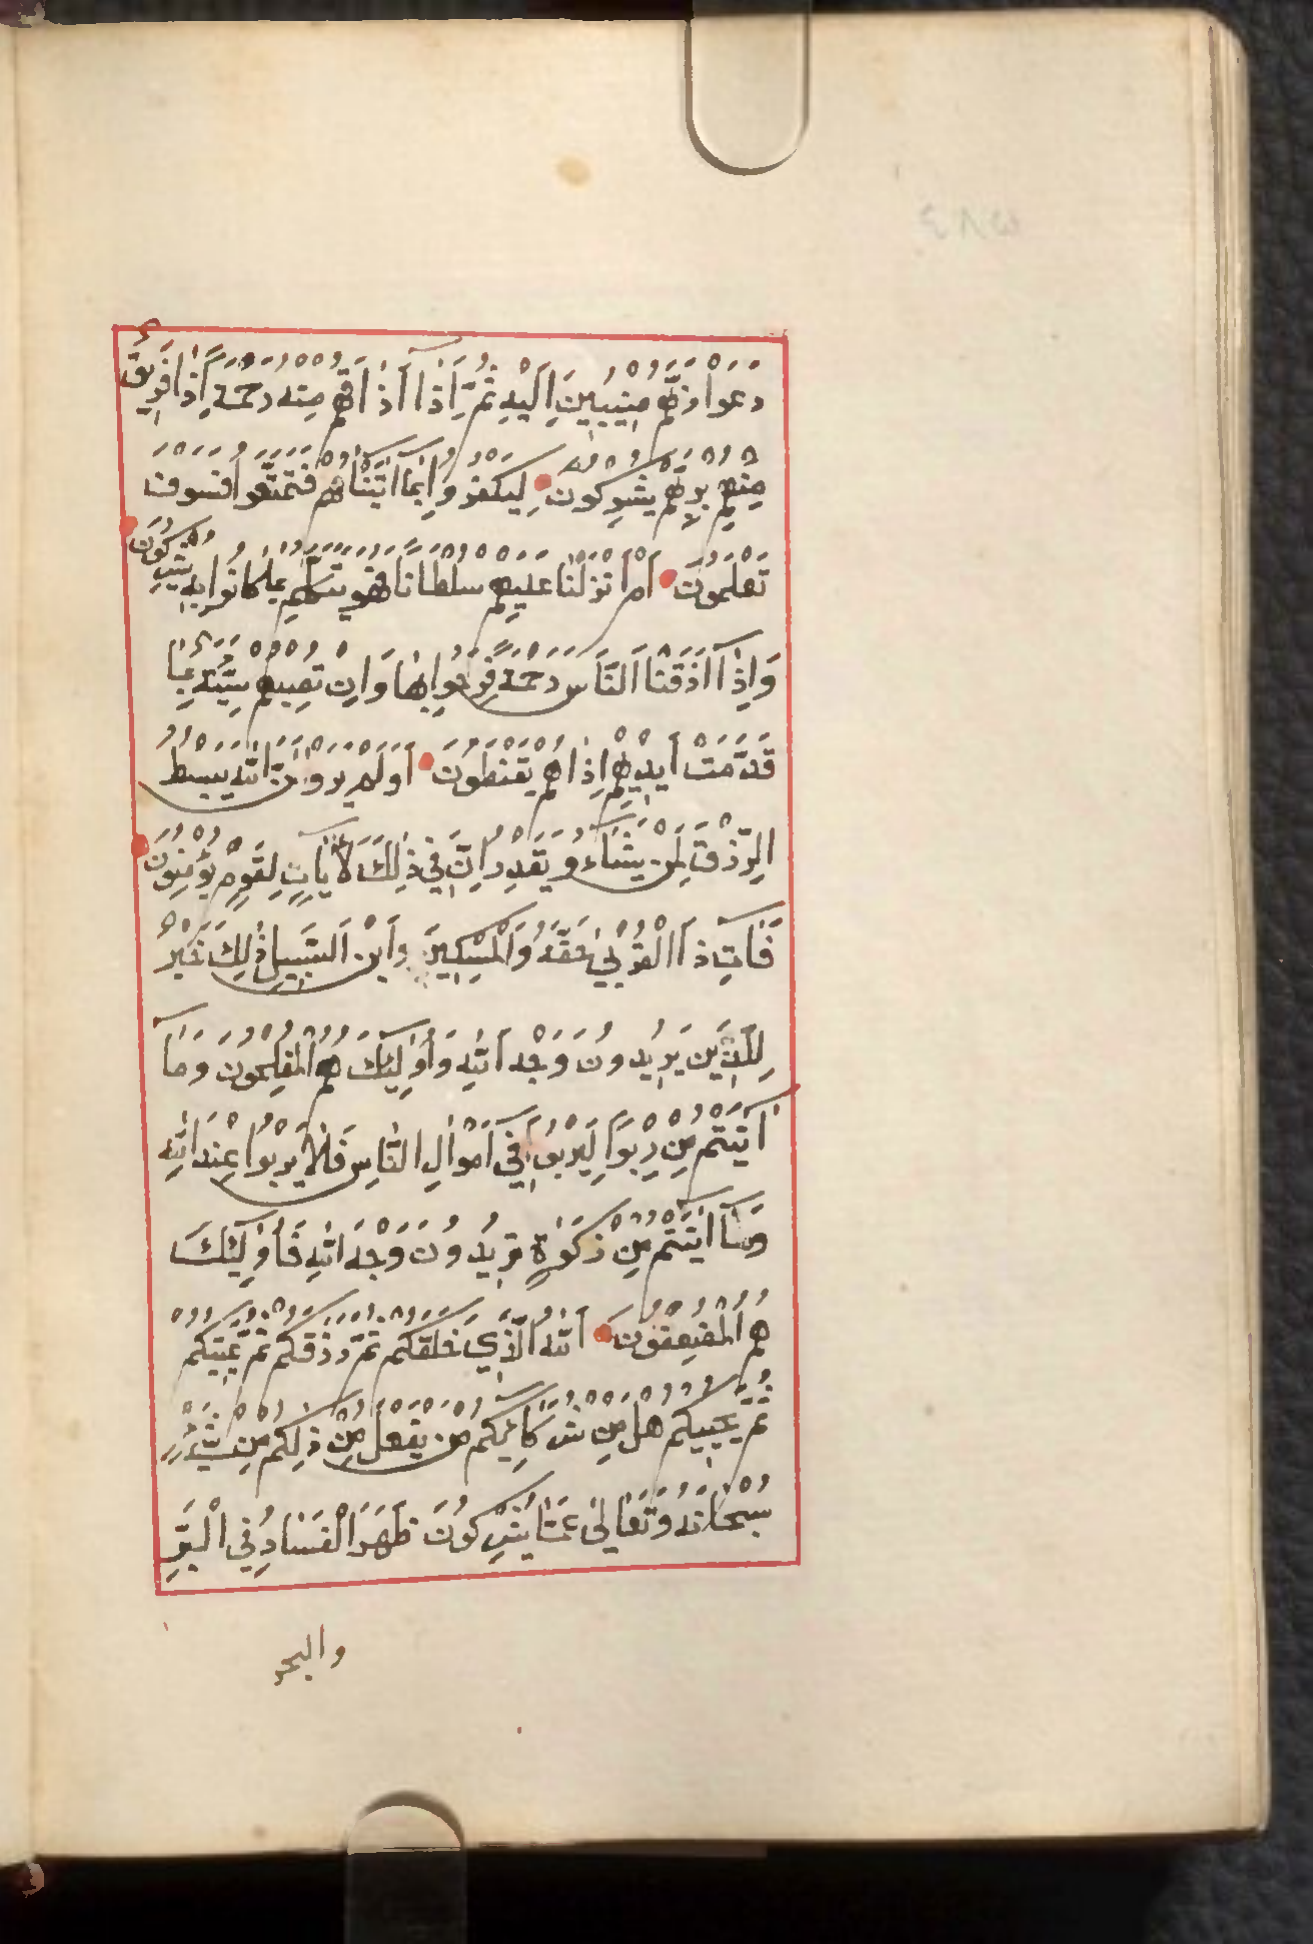 دَعَوْا رَبَّهُمْ مُنِيبِينَ إِلَيْهِ ثُمَّ إِذَا أَذَاقَهُمْ مِنْهُ رَحْمَةً إِذَا فَرِيقٌ
مِنْهُمْ بِرَبِّهِمْ يُشْرِكُونَ لِيَكْفُرُوا بِمَا آتَيْنَاهُمْ فَتَمَتَّعُوا فَسَوْفَ
تَعْلَمُونَ أَمْ أَنْزَلْنَا عَلَيْهِمْ سُلْطَانًا فَهُوَ يَتَكَلَّمُ بِمَا كَانُوا بِهِ يُشْرِكُونَ
وَإِذَا أَذَقْنَا النَّاسَ رَحْمَةً فَرِحُوا بِهَا وَإِنْ تُصِبْهُمْ سَيِّئَةٌ بِمَا
قَدَّمَتْ أَيْدِيهِمْ إِذَا هُمْ يَقْنَطُونَ أَوَلَمْ يَرَوْا أَنَّ اللَّهَ يَبْسُطُ
الرِّزْقَ لِمَنْ يَشَاءُ وَيَقْدِرُ إِنَّ فِي ذَلِكَ لَآيَاتٍ لِقَوْمٍ يُؤْمِنُونَ
فَآتِ ذَا الْقُرْبَى حَقَّهُ وَالْمِسْكِينَ وَابْنَ السَّبِيلِ ذَلِكَ خَيْرٌ
لِلَّذِينَ يُرِيدُونَ وَجْهَ اللَّهِ وَأُولَئِكَ هُمُ الْمُفْلِحُونَ وَمَا
آتَيْتُمْ مِنْ رِبًوا لِيَرْبُوَا فِي أَمْوَالِ النَّاسِ فَلَا يَرْبُوا عِنْدَ اللَّهِ
وَمَا آتَيْتُمْ مِنْ زَكَوٰةٍ تُرِيدُونَ وَجْهَ اللَّهِ فَأُولَئِكَ
هُمُ الْمُضْعِفُونَ اللَّهُ الَّذِي خَلَقَكُمْ ثُمَّ رَزَقَكُمْ ثُمَّ يُمِيتُكُمْ
ثُمَّ يُحْيِيكُمْ هَلْ مِنْ شُرَكَائِكُمْ مَنْ يَفْعَلُ مِنْ ذَلِكُمْ مِنْ شَيْءٍ
سُبْحَانَهُ وَتَعَالَى عَمَّا يُشْرِكُونَ ظَهَرَ الْفَسَادُ فِي الْبَرِّ
والبحر